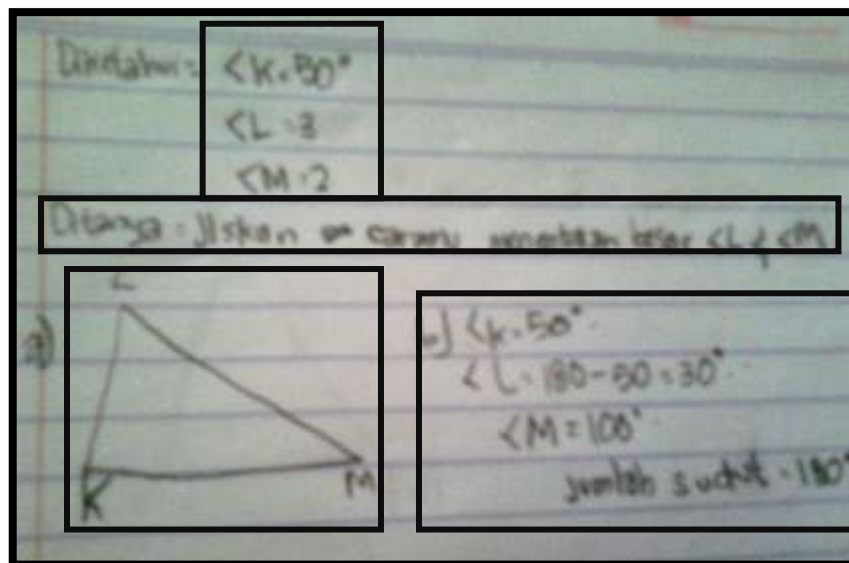 Diketahui = <K = 50°
<L = 3
<M = 2
Ditanya : Jlskan caramu menentukan besar <L & <M
a)
L
K
M
b) <K = 50°
<L = 180 - 50 = 30°
<M = 100°
Jumlah sudut = 180°